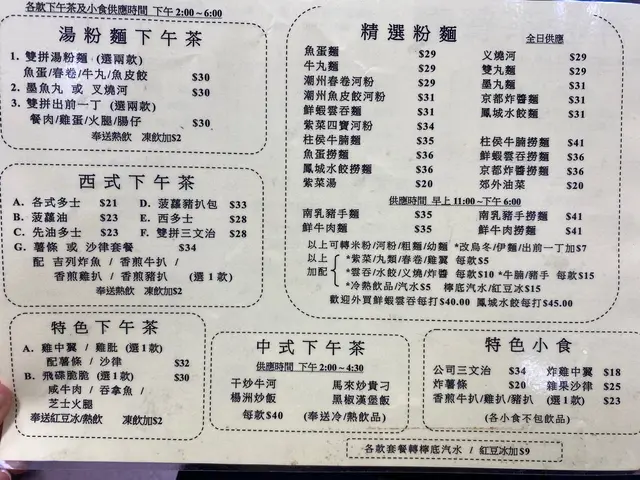 各款下午茶及小食供應時間 下午 2:00～6:00
湯粉麵下午茶
1. 雙拼湯粉麵 (選兩款)
魚蛋/春卷/牛丸/魚皮餃 $30
2. 墨魚丸 或 叉燒河
3. 雙拼出前一丁 (選兩款)
餐肉/雞蛋/火腿/腸仔 $30
奉送熱飲 凍飲加$2
西式下午茶
A. 各式多士 $21 D. 菠蘿豬扒包 $33
B. 菠蘿油 $23 E. 西多士 $28
C. 先油多士 $23 F. 雙拼三文治 $28
G. 薯條 或 沙律套餐 $34
配 吉列炸魚 / 香煎牛扒 /
香煎雞扒 / 香煎豬扒 (選 1 款)
奉送熱飲 凍飲加$2
特色下午茶
A. 雞中翼 / 雞肶 (選 1 款)
配薯條 / 沙律 $32
B. 飛碟脆脆 (選 1 款) $30
咸牛肉 / 吞拿魚 /
芝士火腿
奉送紅豆冰/熱飲 凍飲加$2
精選粉麵 全日供應
魚蛋麵 $29 义燒河 $29
牛丸麵 $29 雙丸麵 $29
潮州春卷河粉 $31 墨丸麵 $31
潮州魚皮餃河粉 $31 京都炸醬麵 $31
鮮蝦雲吞麵 $31 鳳城水餃麵 $31
紫菜四寶河粉 $34
柱侯牛腩麵 $35 柱侯牛腩撈麵 $41
魚蛋撈麵 $36 鮮蝦雲吞撈麵 $36
鳳城水餃撈麵 $36 京都炸醬撈麵 $36
紫菜湯 $20 郊外油菜 $20
供應時間 早上 11:00～下午 6:00
南乳豬手麵 $35 南乳豬手撈麵 $41
鮮牛肉麵 $35 鮮牛肉撈麵 $41
以上可轉米粉/河粉/粗麵/幼麵 *改烏冬/伊麵/出前一丁加$7
以上加配 *紫菜/九類/春卷/雞翼 每款$5
*雲吞/水餃/义燒/炸醬 每款$10 *牛腩/豬手 每款$15
*冷熱飲品/汽水$5 檸底汽水/紅豆冰$15
歡迎外買鮮蝦雲吞每打$40.00 鳳城水餃每打$45.00
中式下午茶
供應時間 下午 2:00～4:30
干炒牛河 馬來炒貴刁
楊洲炒飯 黑椒漢堡飯
每款$40 (奉送冷/熱飲品)
特色小食
公司三文治 $34 炸雞中翼 $18
炸薯條 $20 雜果沙律 $25
香煎牛扒/雞扒/豬扒 (選1款) $23
(各小食不包飲品)
各款套餐轉檸底汽水 / 紅豆冰加$9